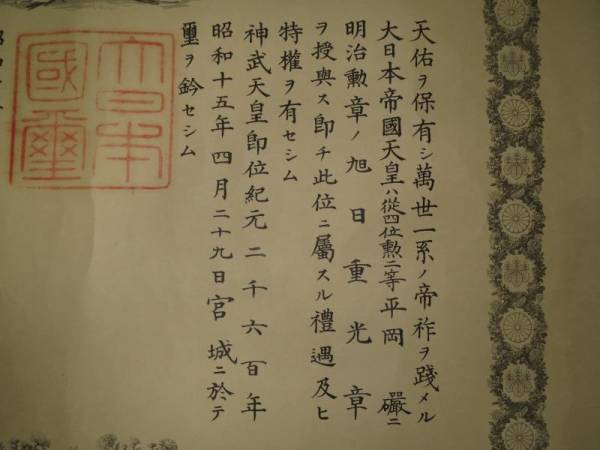 天佑ヲ保有シ萬世一系ノ帝祚ヲ踐メル
大日本帝國天皇ハ從四位勲二等平岡 巖ニ
明治勲章ノ旭日重光章
ヲ授與ス即チ此位ニ屬スル禮遇及ヒ
特權ヲ有セシム
神武天皇即位紀元二千六百年
昭和十五年四月二十九日宮城ニ於テ
璽ヲ鈐セシム
大日本
國璽